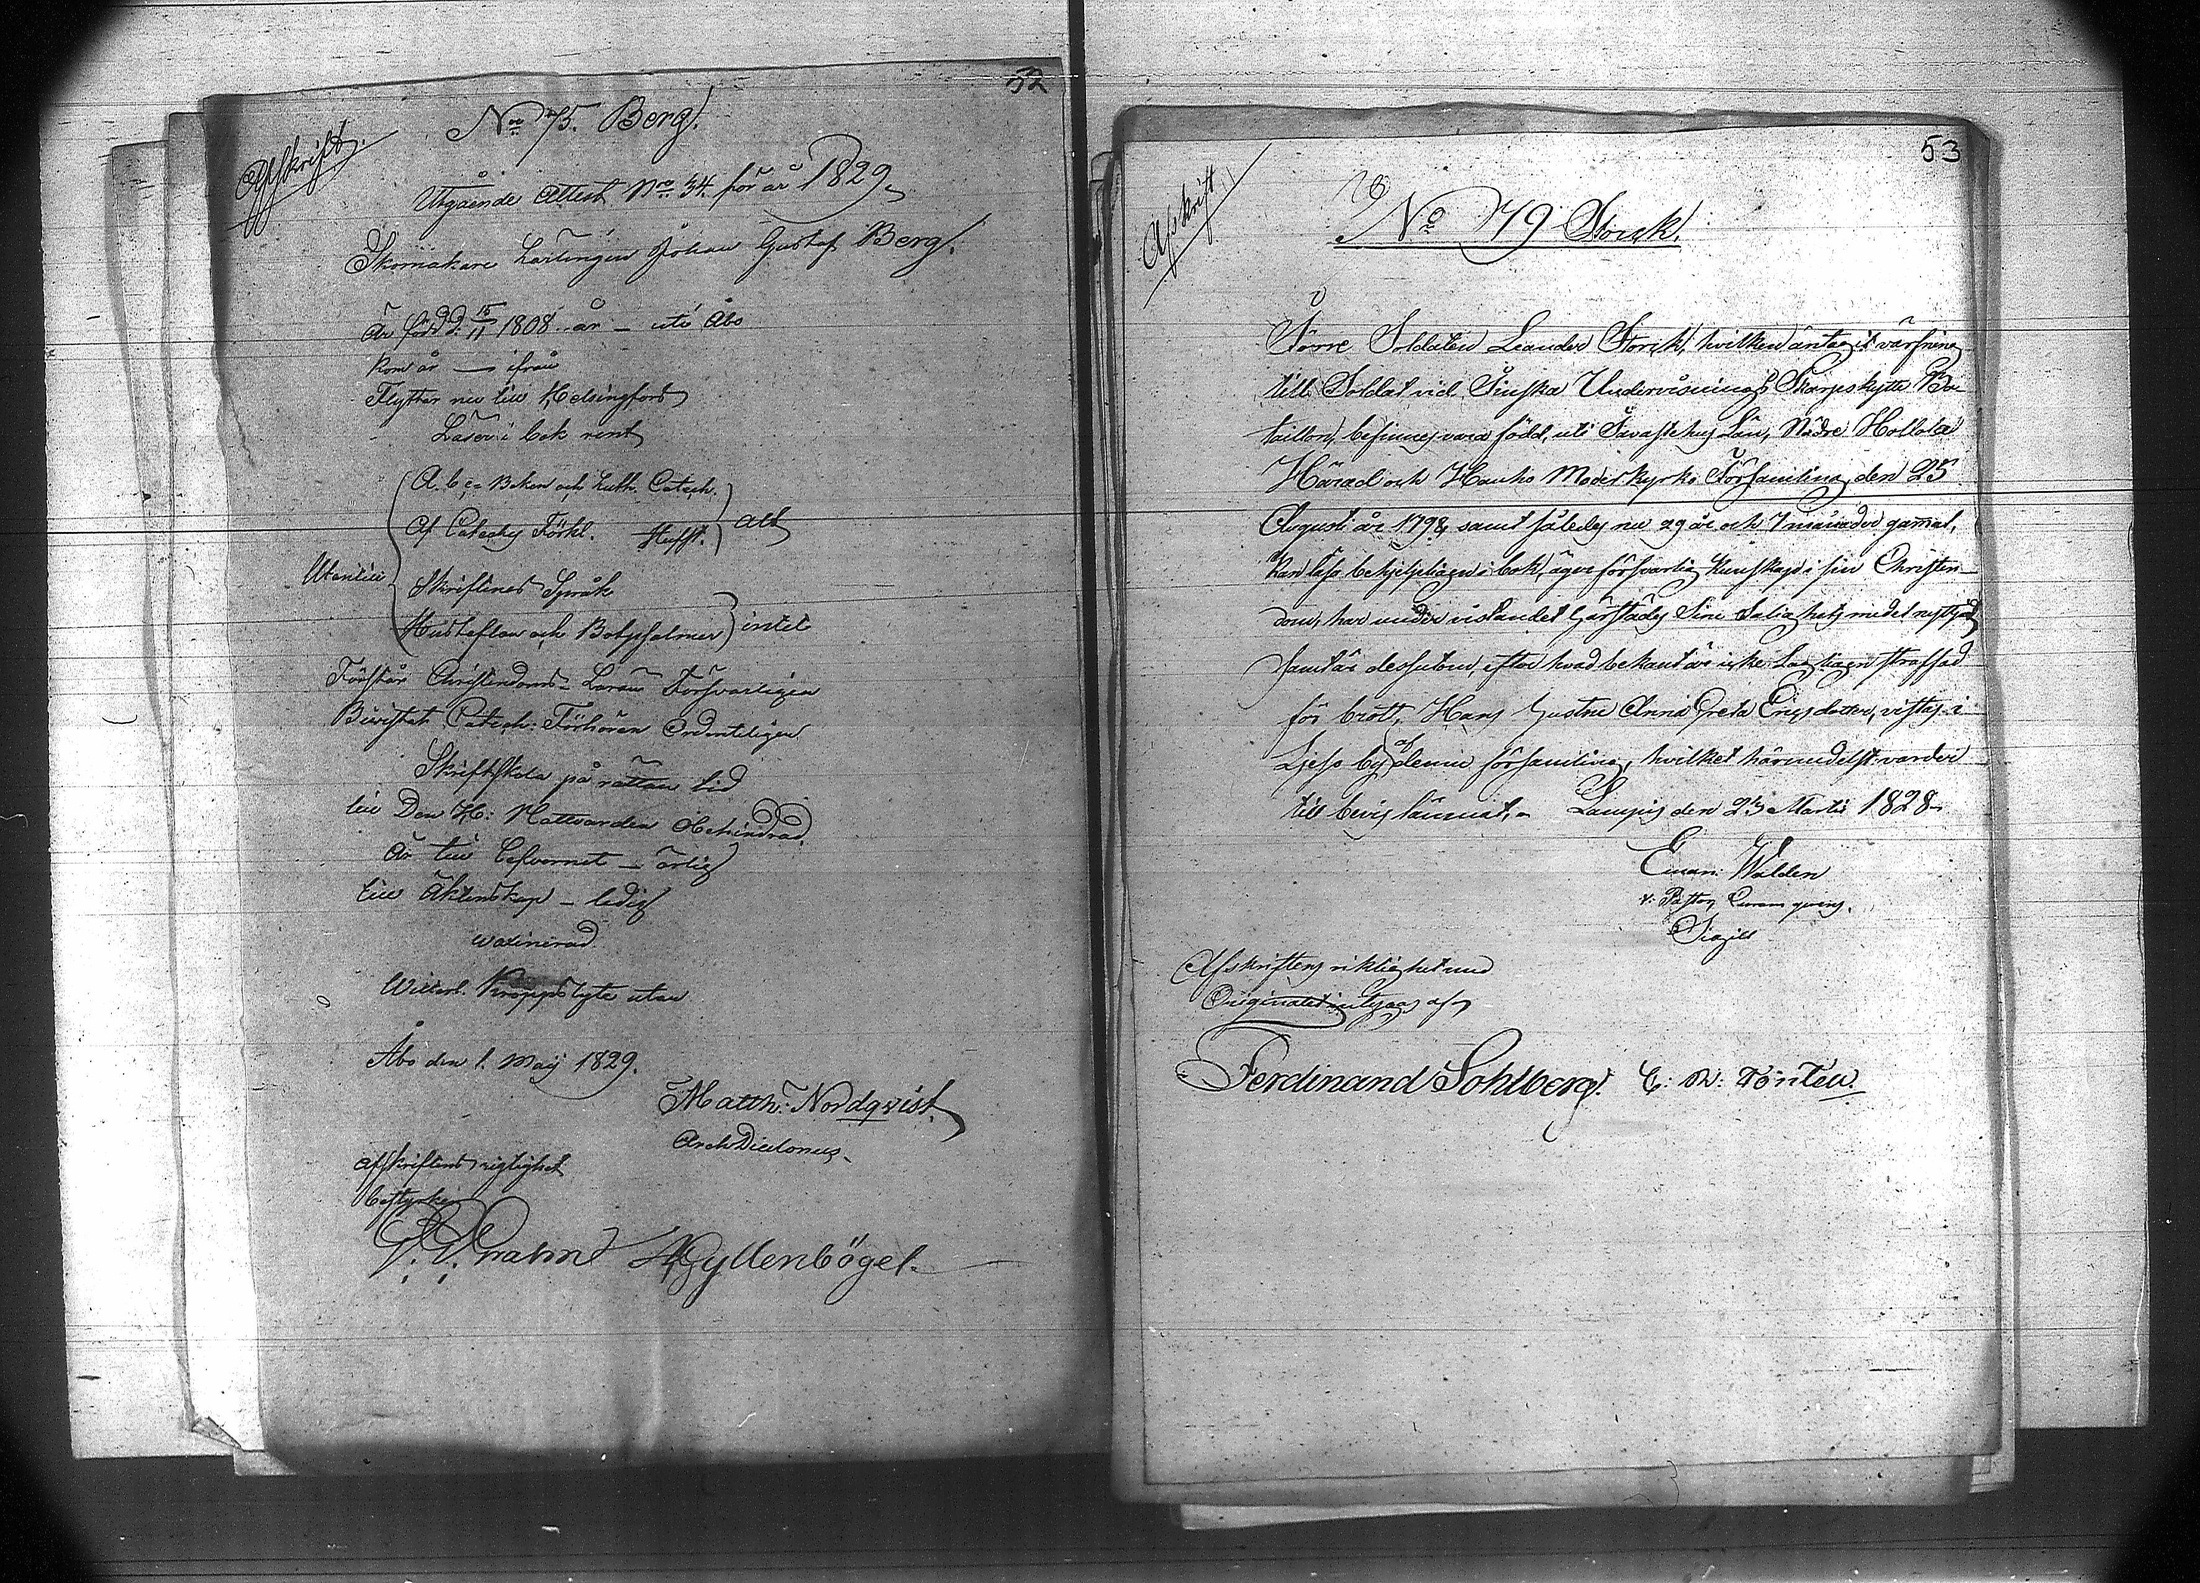 52
Afskrift.
No 75. Berg.
Utgående Attest Nro 34. för år 1829.
Skomakare Lärlingen Johan Gustaf Berg.
Är född d. 15/11 1808 .. år – uti Åbo
Kom år — ifrån
Flyttar nu till Helsingfors
Läser i bok rent
A.b.c. Boken och Luth. Catech.
Af Catechs Förkl. Hufst. alt
Utantill
Skriftenes Språk
Hustaflan och Botpsalmer intet
Förstår Christendoms Läran Försvarligen
Bivistat Catech: Förhören Ordenteligen
Skriftskola på rättan tid
till Den H: Nattvarden Obehindrad
Är till Lefvernet – ärlig
till Äktenskap – ledig
vaccinerad
Willerl. Kroppslyte utan
Åbo den 1. Maij 1829.
Matth: Nordqvist
ArchDiaconus
Afskriftens rigtighet
bestyrker
Gyllenbögel.
53
Afskrift
No 79 Storck.
Förre Soldaten Leander Storck, hvilken antagit värfning
till Soldat vid Finska Undervisnings Skarpskytte Ba-
taillon, befinnes vara född, uti Tavastehus Län, Nedre Hollola
Härad och Hauho Moderkyrko Församling, den 25
Augusti år 1798, samt således nu 29 år och 7 månader gammal,
kan läsa behjelpligen i bok, äger försvarlig kunskap i sin Christen-
dom, har under vistandet härstädes Sine Salighets medel nyttjad
samt är dessutom, efter hvad bekant är icke Lagligen straffad
för brott, Hans hustru Anna Greta Ericsdotter, vistas i
by af denna församling, hvilket härmedelst varder
till bevis lämnat. Lampis den 23 Martii 1828
Eman: Walden
v: Pastor,
Sigill
Afskriftens riktighet med
Originalet intygas af
Ferdinand Sohlberg. C: R: Tönten.